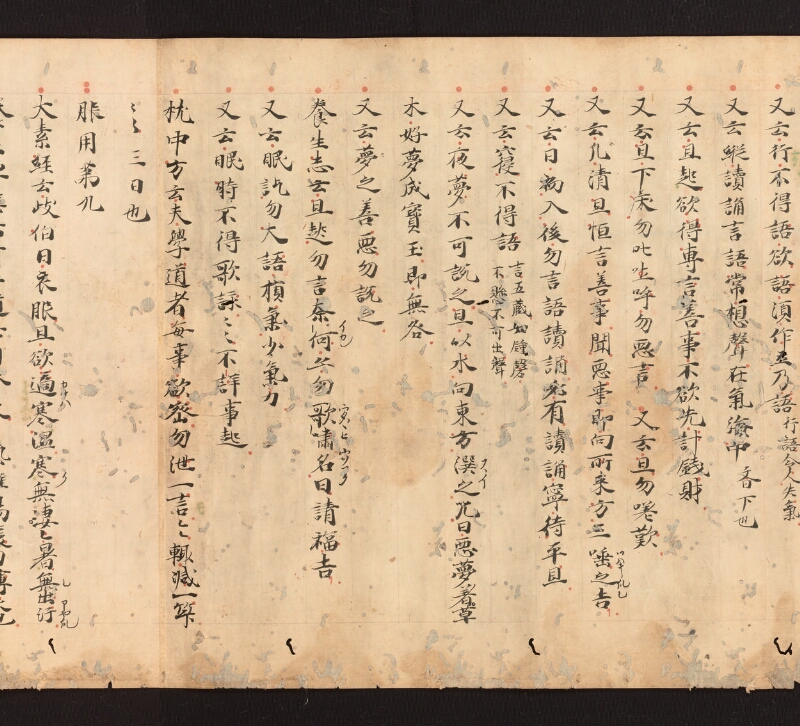 又云行不得語欲語須作立乃語行語令人失氣
又云縱讀誦言語常想聲在氣海中齊下也
又云旦起欲得專言善事不欲先計錢財
又云旦下床勿叱吐呼勿惡言 又云旦勿嗟歎
又云凡清旦恒言善事聞惡事即向所來方三唾之吉
又云日初入後勿言語讀誦必有讀誦寧待平旦
又云寢不得語言五藏如鍾磬
不懸不可出聲
又云夜夢不可說之旦以水向東方潠之咒曰惡夢着草
木好夢成寶玉即無咎
又云夢之善惡勿說之
養生志云旦起勿言奈何亦勿歌嘯名曰請福吉
又云眠訖勿大語損氣少氣力
又云眠時不得歌詠〻〻不詳事起
枕中方云夫學道者每事欲密勿泄一言〻〻輒減一筭
〻〻三日也
服用第九
大素經云岐伯曰衣服且欲適寒温寒無凄〻暑無出行